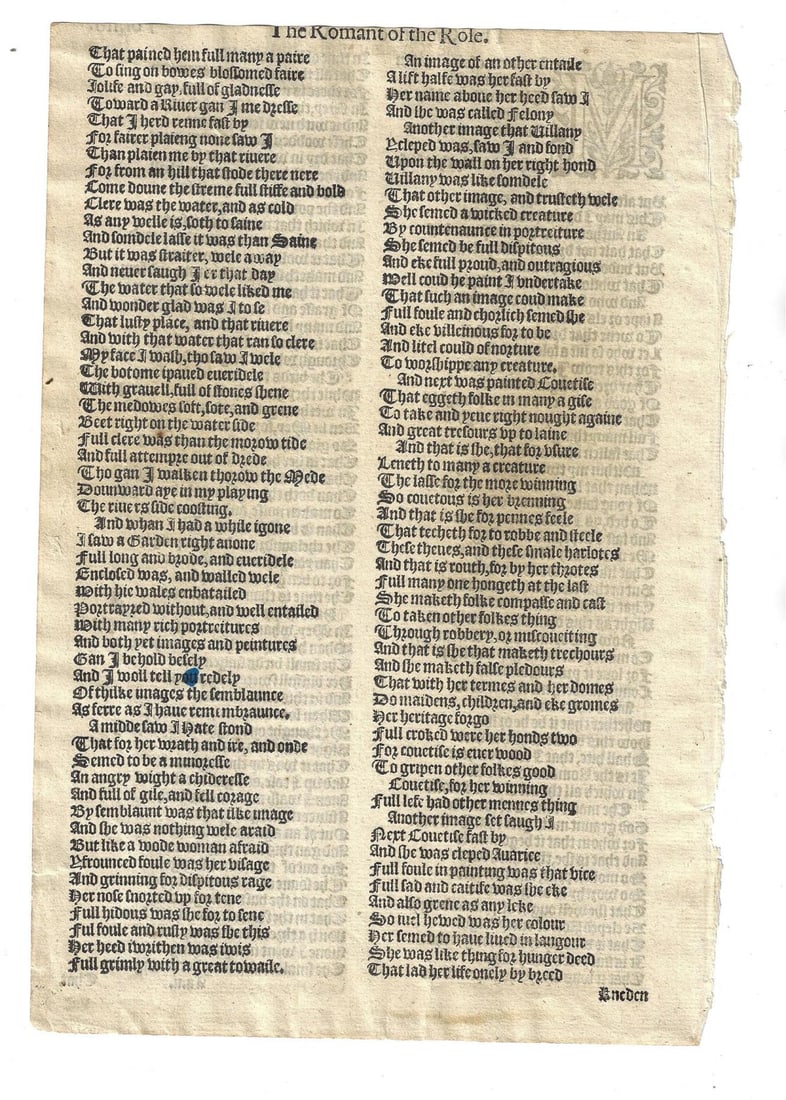 The Romant of the Rose.
That pained hem full many a paire
To sing on bowes blossomed faire
Jolife and gay, full of gladnesse
Toward a Riuer gan J me dresse
That J herd renne fast by
For fairer plaieng none saw J
Than plaien me by that riuere
For from an hill that stode there nere
Come doune the streme full stiffe and bold
Clere was the water, and as cold
As any welle is, soth to saine
And somdele lasse it was than Saine
But it was straiter, wele away
And neuer saugh J er that day
The water that so wele liked me
And wonder glad was J to se
That lusty place, and that riuere
And with that water that ran so clere
My face J wash, tho saw J wele
The botome ipaued eueridele
With grauell, full of stones shene
The medowes soft, sote, and grene
Beet right on the water side
Full clere was than the morow tide
And full attempre out of drede
Tho gan J walken thorow the Mede
Dounward aye in my playing
The riuers side coosting.
And whan J had a while igone
J saw a Garden right anone
Full long and brode, and eueridele
Enclosed was, and walled wele
With hie wales enbatailed
Portrayred without, and well entailed
With many rich portreitures
And both yet images and peintures
Gan J behold besely
And J woll tell you redely
Of thilke images the semblaunce
As ferre as J haue remembraunce.
A midde saw J Hate stond
That for her wrath and ire, and onde
Semed to be a minoresse
An angry wight a chideresse
And full of gile, and fell corage
By semblaunt was that ilke image
And she was nothing wele araid
But like a wode woman afraid
Yfrounced foule was her visage
And grinning for dispitous rage
Her nose snorted vp for tene
Full hidous was she for to sene
Ful foule and rusty was she this
Her heed iwrithen was iwis
Full grimly with a great towaile.
An image of an other entaile
A lift halfe was her fast by
Her name aboue her heed saw J
And she was called Felony
Another image that Uillany
Ycleped was, saw J and fond
Upon the wall on her right hond
Uillany was like somdele
That other image, and trusteth wele
She semed a wicked creature
By countenaunce in portreiture
She semed be full dispitous
And eke full proud, and outragious
Well coud he paint J vndertake
That such an image coud make
Full foule and chorlich semed she
And eke villeinous for to be
And litel could of norture
To worshippe any creature.
And next was painted Couetise
That eggeth folke in many a gise
To take and yeue right nought againe
And great tresours vp to laine
And that is she, that for vsure
Leneth to many a creature
The lasse for the more winning
So couetous is her brenning
And that is she for pennes feele
That techeth for to robbe and steele
These theues, and these smale harlotes
And that is routh, for by her throtes
Full many one hongeth at the last
She maketh folke compasse and cast
To taken other folkes thing
Through robbery, or miscoueiting
And that is she that maketh trechours
And she maketh false pledours
That with her termes and her domes
Do maidens, children, and eke gromes
Her heritage forgo
Full croked were her honds two
For couetise is euer wood
To gripen other folkes good
Couetise, for her winning
Full lefe had other mennes thing
Another image set saugh J
Next Couetise fast by
And she was cleped Auarice
Full foule in painting was that vice
Full sad and caitife was she eke
And also grene as any leke
So iuel hewed was her colour
Her semed to haue liued in langour
She was like thing for hunger deed
That lad her life onely by breed
Kneden